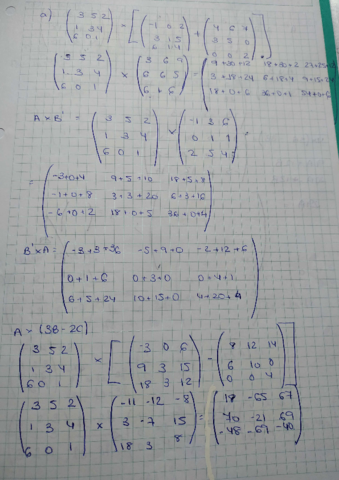 a) (3 5 2 / 1 3 4 / 6 0 1) × [(-1 0 2 / 3 1 5 / 6 1 4) + (4 6 7 / 3 5 0 / 0 0 2)]
(3 5 2 / 1 3 4 / 6 0 1) × (3 6 9 / 6 6 5 / 6 + 6) = (9+30+12 18+30+2 / 3+18+24 6+18+4 9+15+24 / 18+0+6 36+0+1 54+0+6)
A×B' = (3 5 2 / 1 3 4 / 6 0 1) × (-1 3 6 / 0 1 1 / 2 5 4) =
= (-3+0+4 9+5+10 18+5+8 / -1+0+8 3+3+20 6+3+16 / -6+0+2 18+0+5 36+0+4)
B'×A = (-3+3+36 -5+9+0 -2+12+6 / 0+1+6 0+3+0 0+4+1 / 6+5+24 10+15+0 4+20+4)
A × (3B-2C)
(3 5 2 / 1 3 4 / 6 0 1) × [(-3 0 6 / 9 3 15 / 18 3 12) - (8 12 14 / 6 10 0 / 0 0 4)]
(3 5 2 / 1 3 4 / 6 0 1) × (-11 -12 -8 / 3 -7 15 / 18 3 8) = (18 -65 67 / 70 -21 69 / -48 -69 -40)